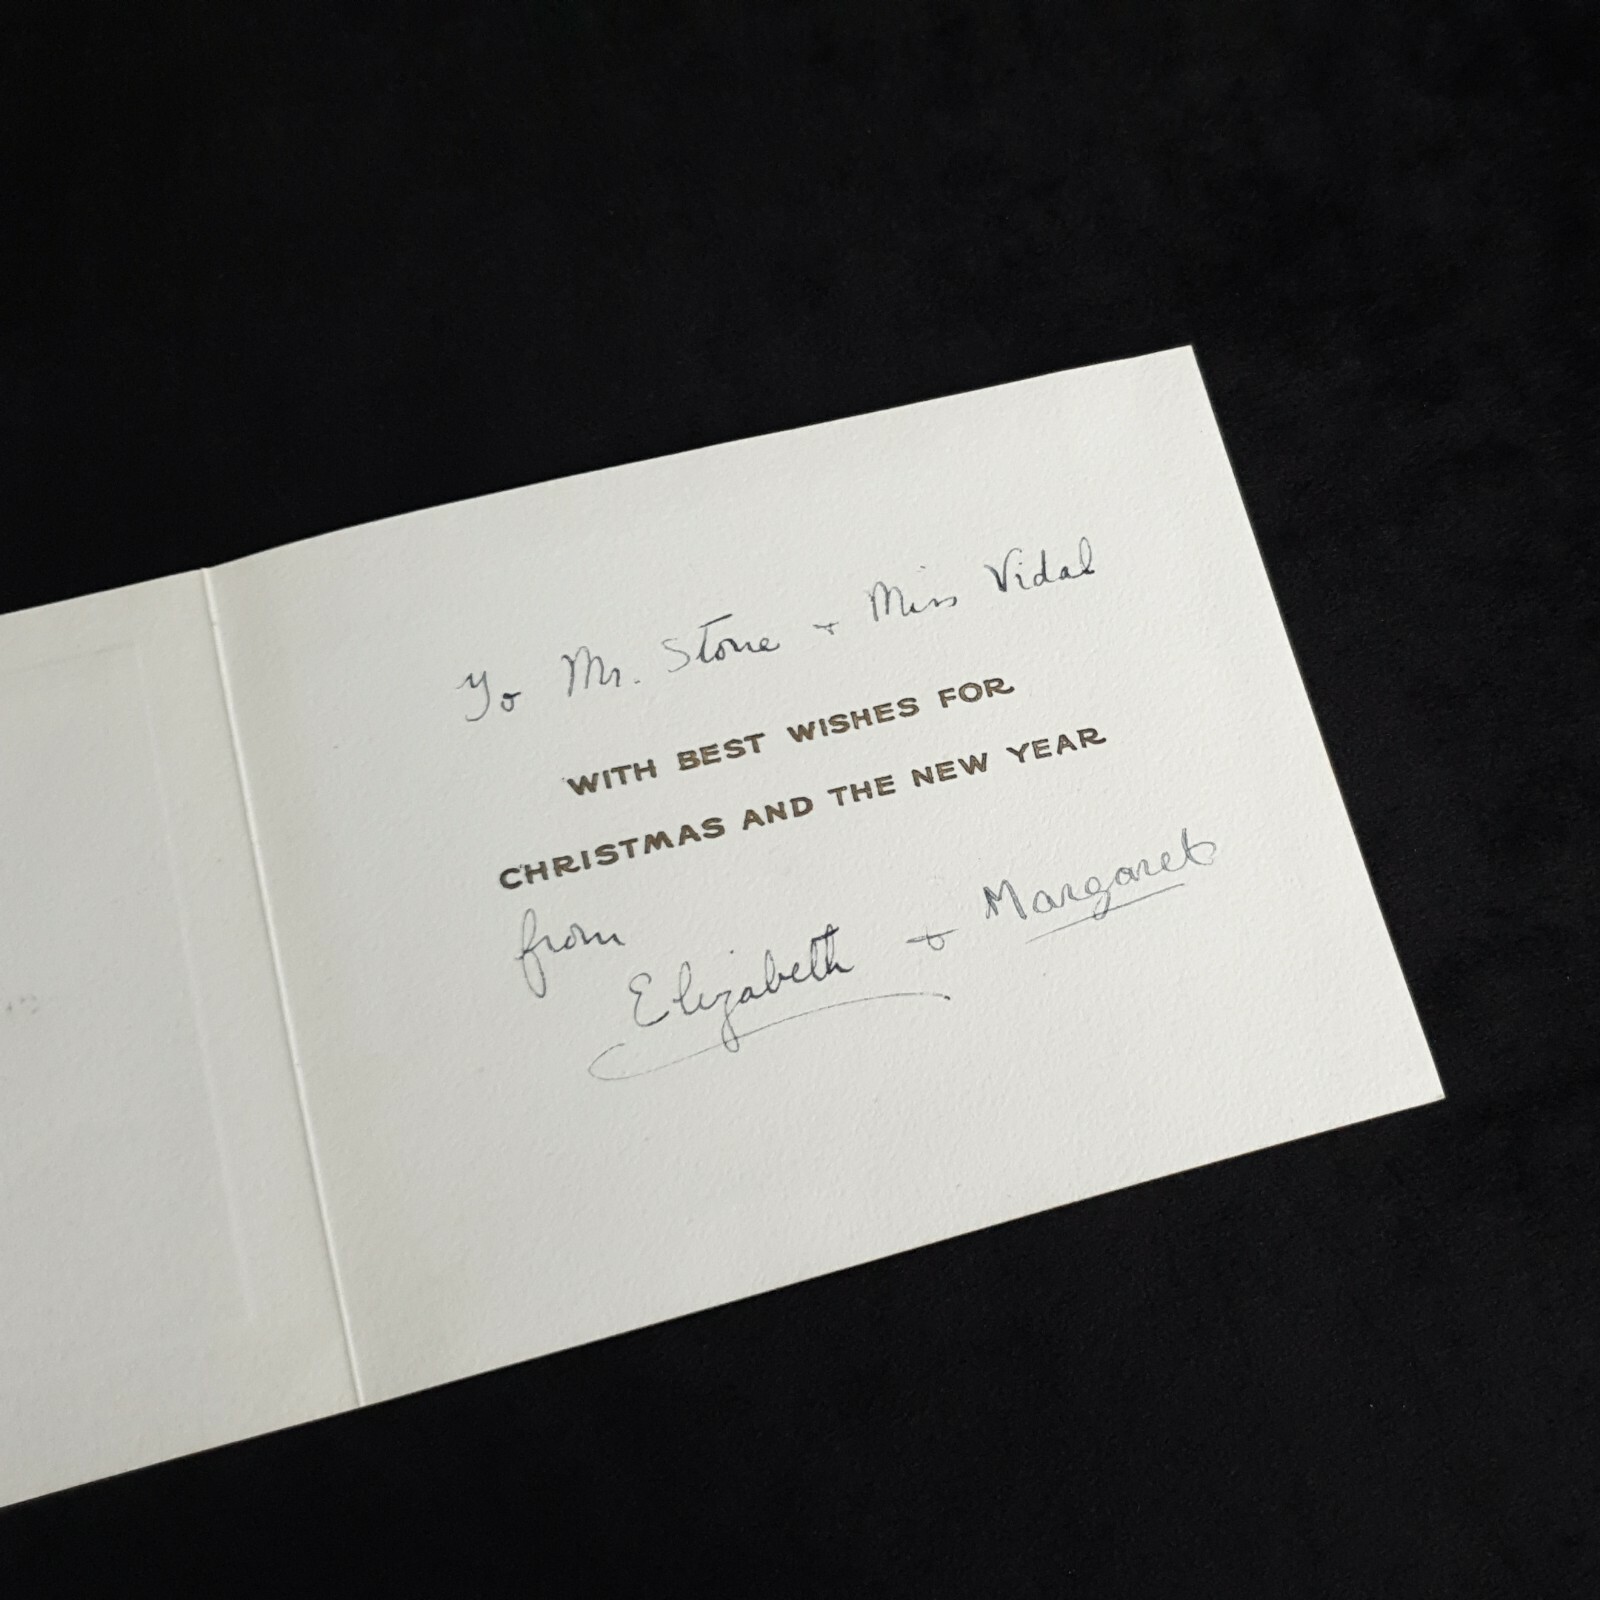 To Mr. Stone + Miss Vidal
WITH BEST WISHES FOR
CHRISTMAS AND THE NEW YEAR
from
Elizabeth + Margaret